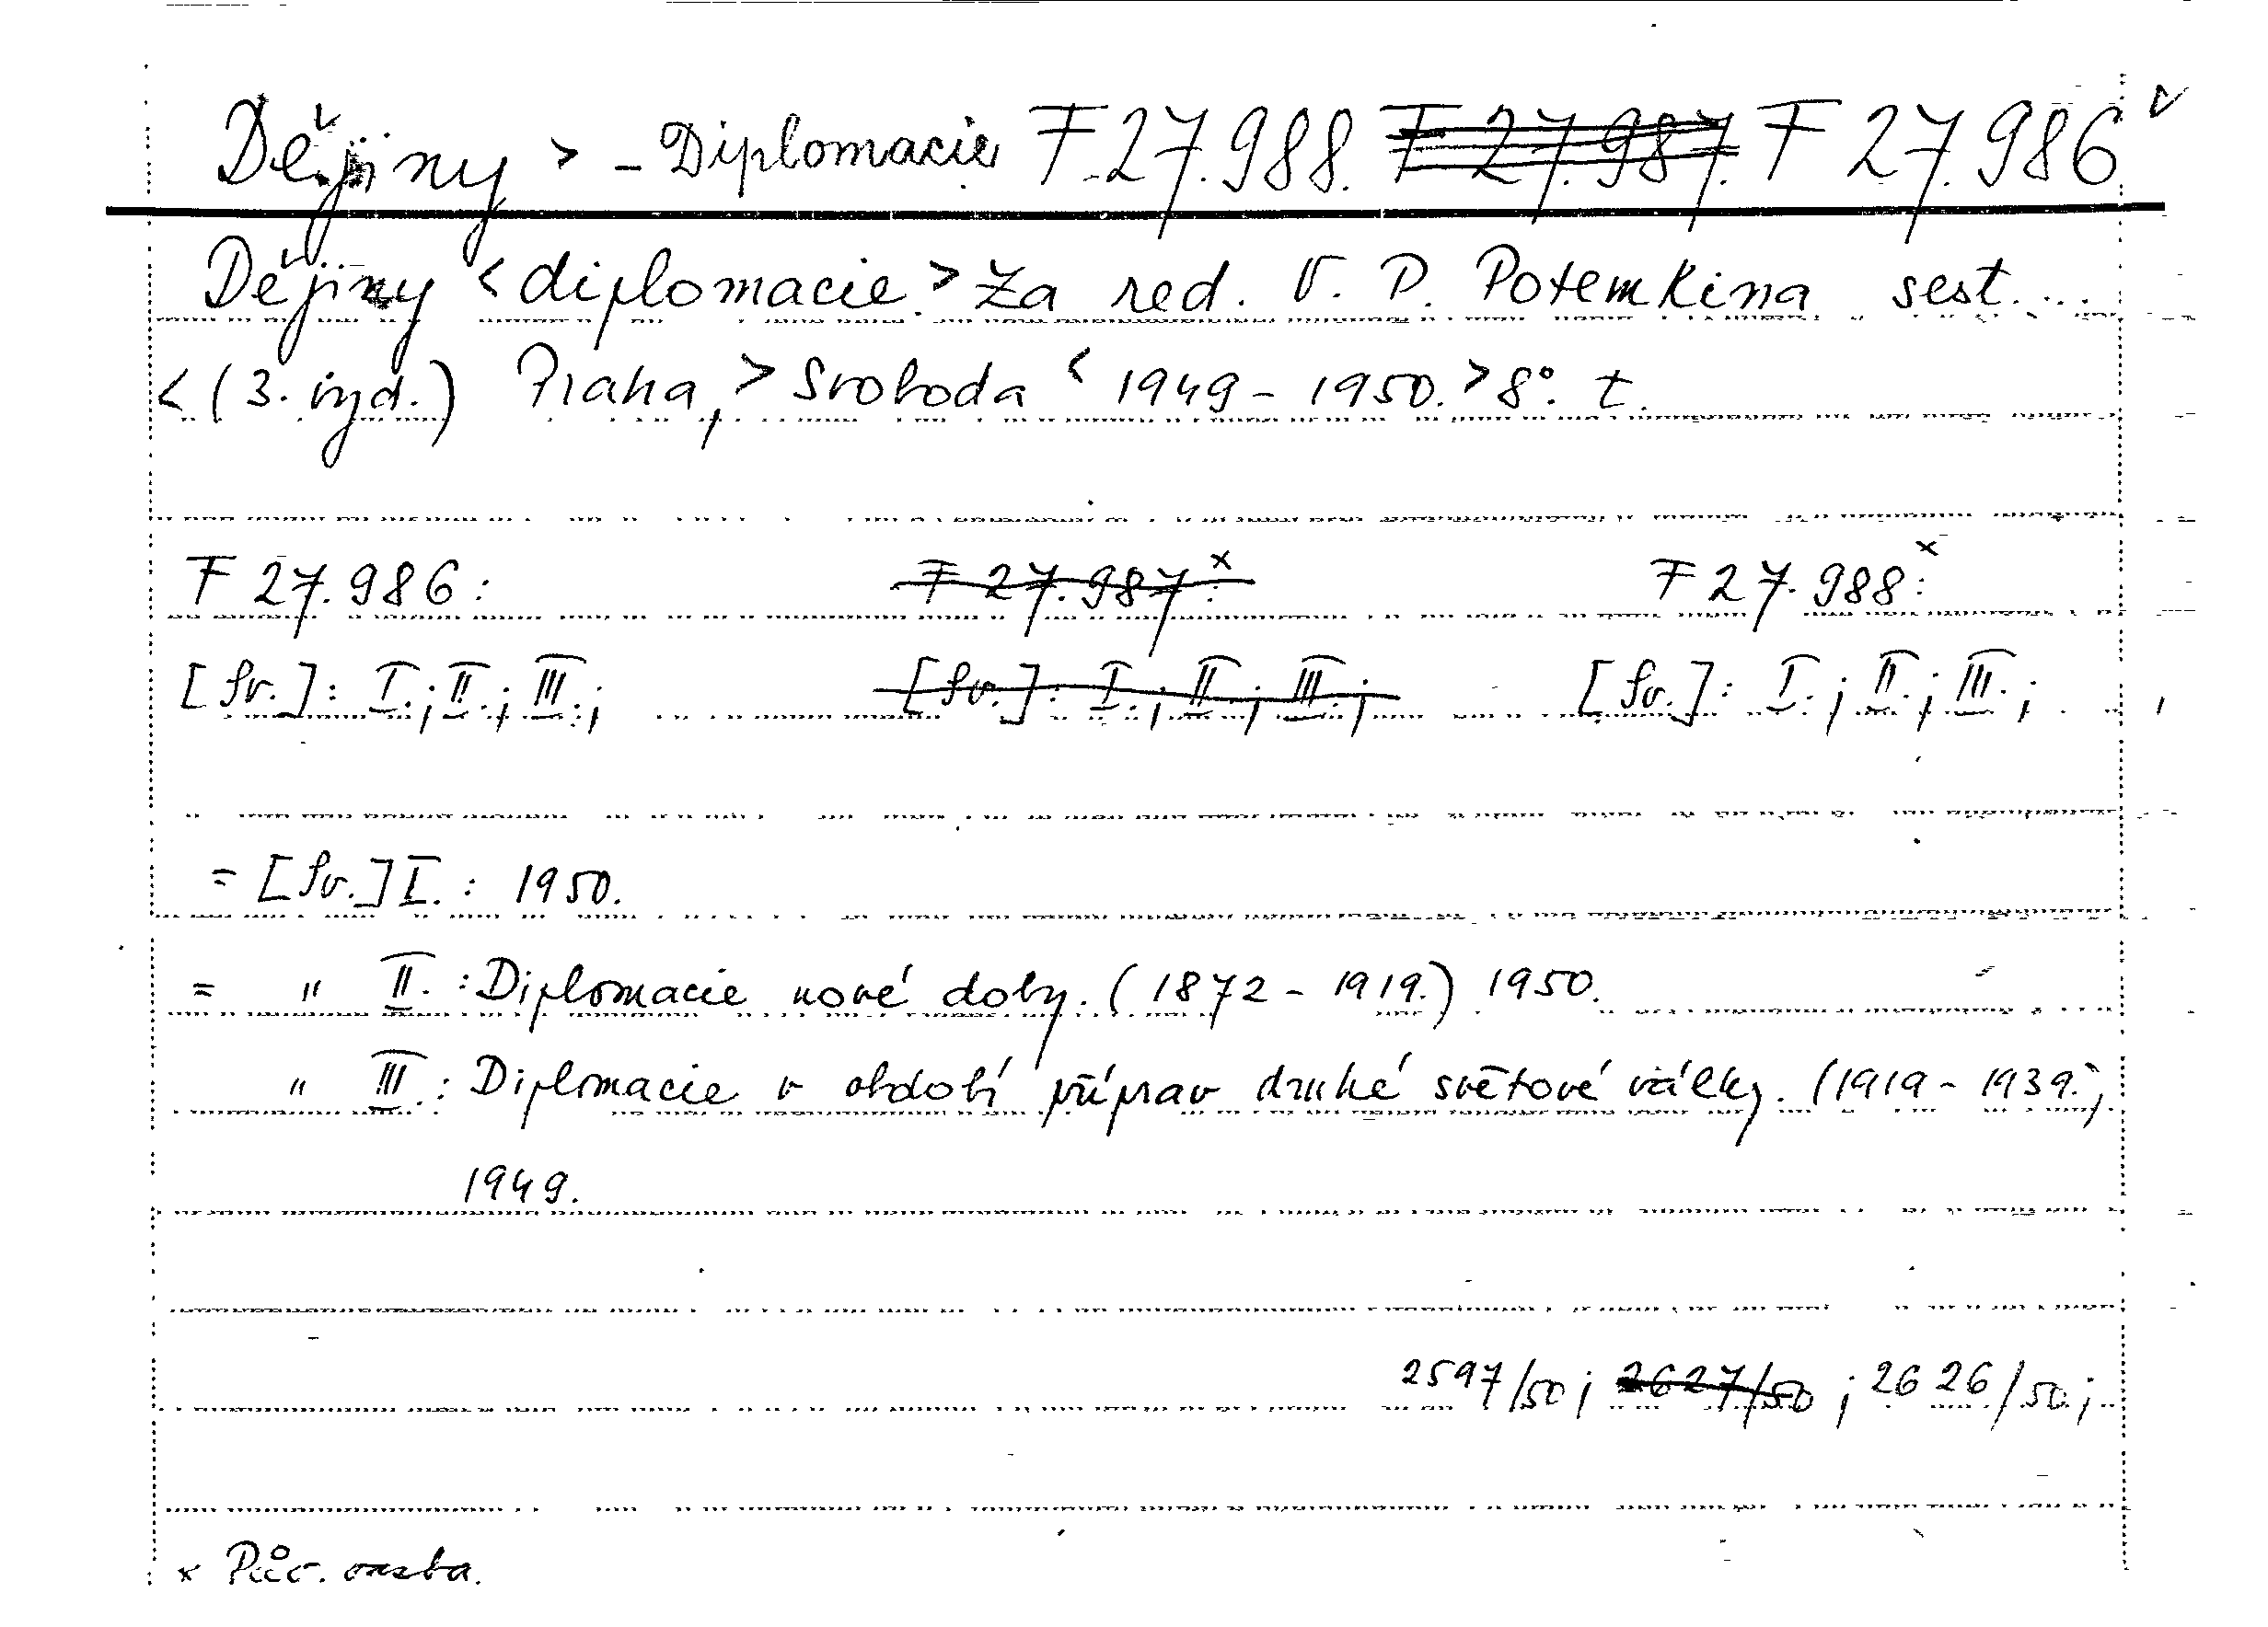 Dějiny > - Diplomacie F 27.988. F 27.987. F 27.986
Dějiny < diplomacie. > Za red. V. P. Potemkina sest. ...
< (3. vyd.) Praha, > Svoboda < 1949 - 1950. > 8°. t.
F 27.986: F 27.987:x F 27.988:x
[Sv.]: I.; II.; III.; [Sv.]: I.; II.; III.; [Sv.]: I.; II.; III.;
= [Sv.] I. : 1950.
= " II. : Diplomacie nové doby. (1872 - 1919.) 1950.
" III. : Diplomacie v období příprav druhé světové války. (1919 - 1939.)
1949.
2597/50; 2627/50; 2626/50;
x Pův. vazba.